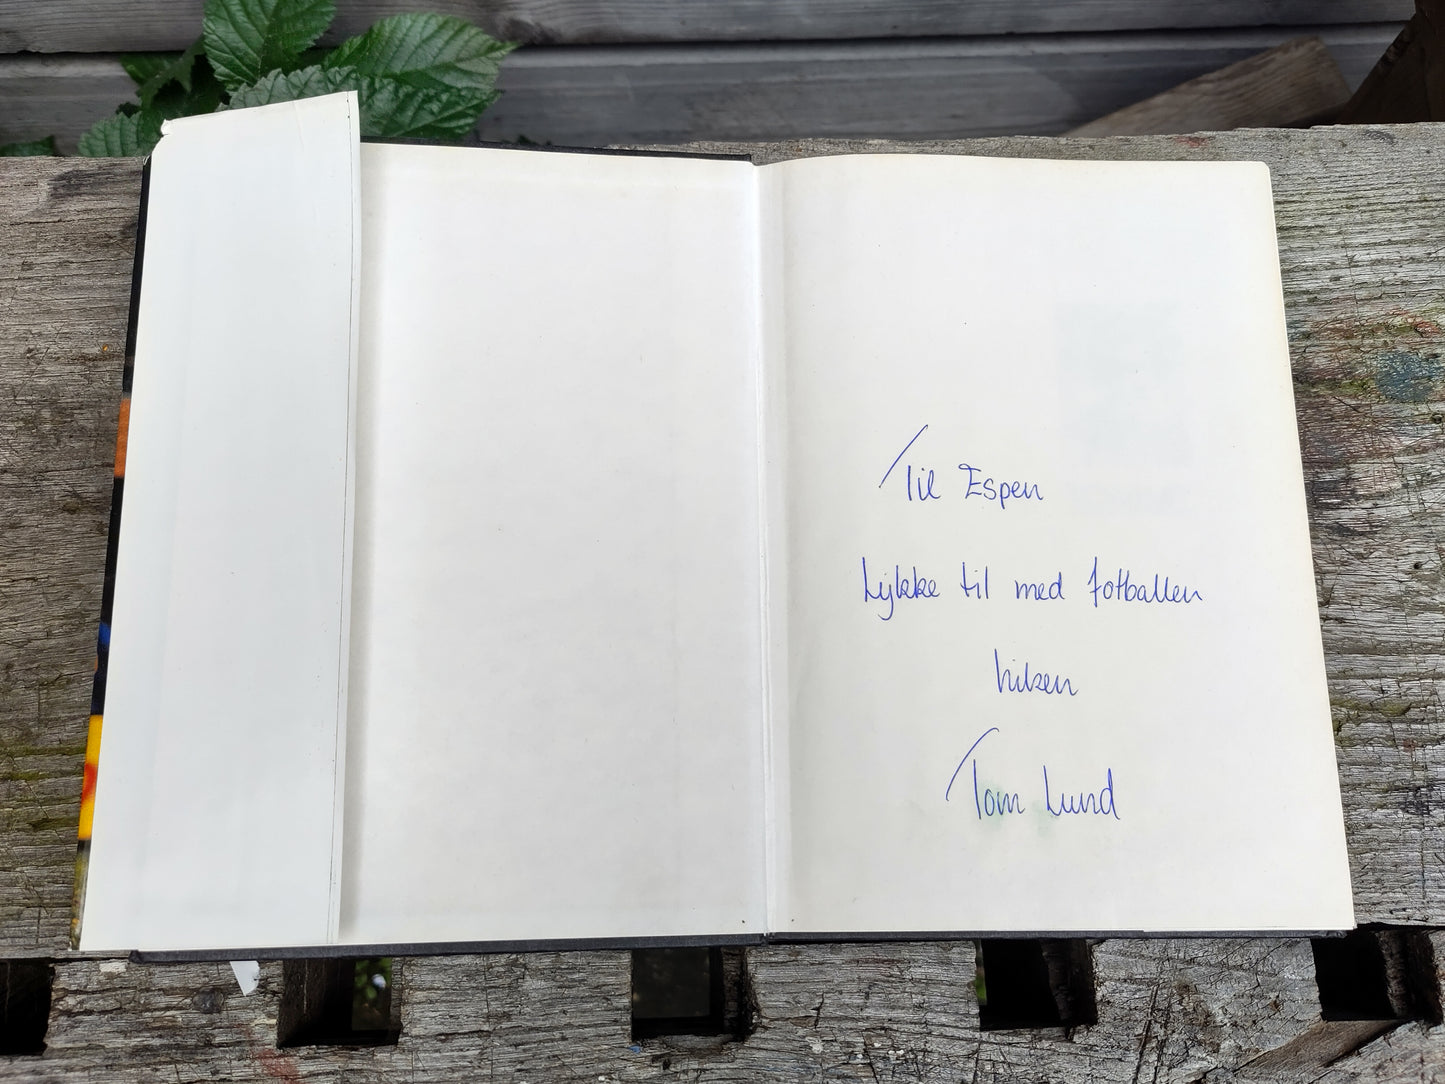 Til Espen
Lykke til med fotballen
hilsen
Tom Lund